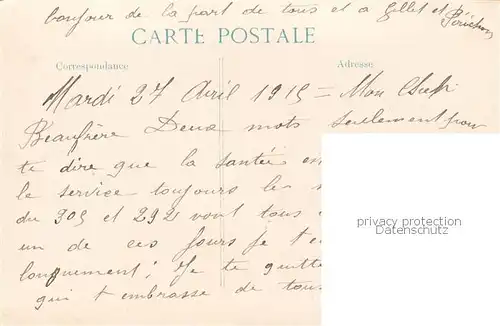 bonjour de la part de tous et a Gillet et Périchon
CARTE POSTALE
Correspondance
Adresse
Mardi 27 Avril 1915 = Mon Cher
Beaufrère Deux mots seulement pour
te dire que la santée
le service toujours le
du 305 et 292 vont tous
un de ces jours je t'
longuement; Je te quitte
qui t embrasse de tous
privacy protection
Datenschutz